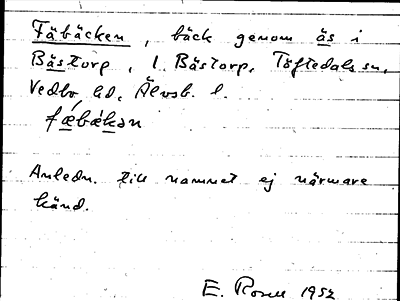 Fäbäcken, bäck genom ås i
Båstorp, l. Båstorp, Töftedals sn,
Vedbo hd, Älvsb. l.
fæbækən
Anledn. till namnet ej närmare
känd.
E. Rosell 1952